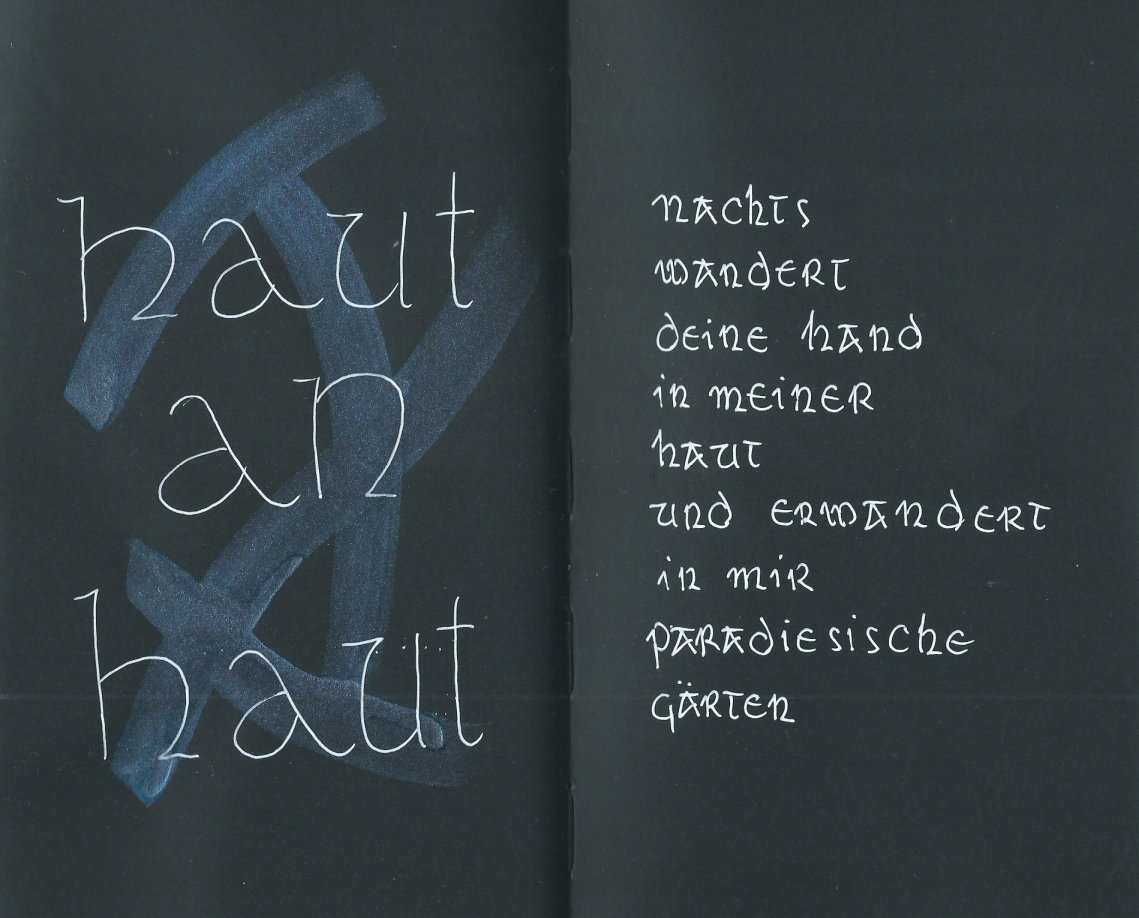 haut
an
haut
nachts
wandert
deine hand
in meiner
haut
und erwandert
in mir
paradiesische
gärten